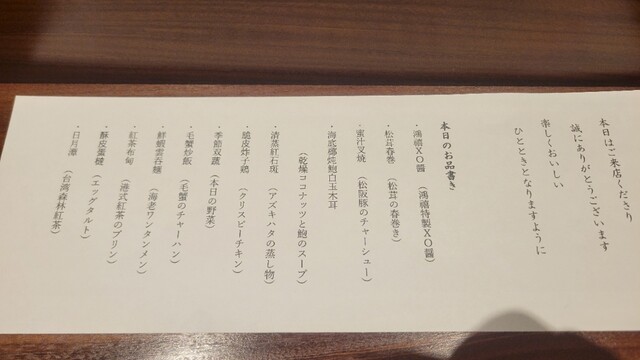 本日はご来店くださり
誠にありがとうございます
楽しくおいしい
ひとときとなりますように
本日のお品書き
・鴻禧ＸＯ醤　（鴻禧特製ＸＯ醤）
・松茸春巻　（松茸の春巻き）
・蜜汁叉焼　（松阪豚のチャーシュー）
・海底椰炖鮑白玉木耳
（乾燥ココナッツと鮑のスープ）
・清蒸紅石斑　（アズキハタの蒸し物）
・脆皮炸子鶏　（クリスピーチキン）
・季節双蔬　（本日の野菜）
・毛蟹炒飯　（毛蟹のチャーハン）
・鮮蝦雲呑麺　（海老ワンタンメン）
・紅茶布甸　（港式紅茶のプリン）
・酥皮蛋撻　（エッグタルト）
・日月潭　（台湾森林紅茶）